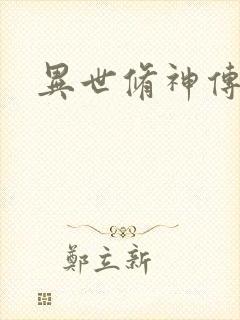 異世脩神傳
鄭立新